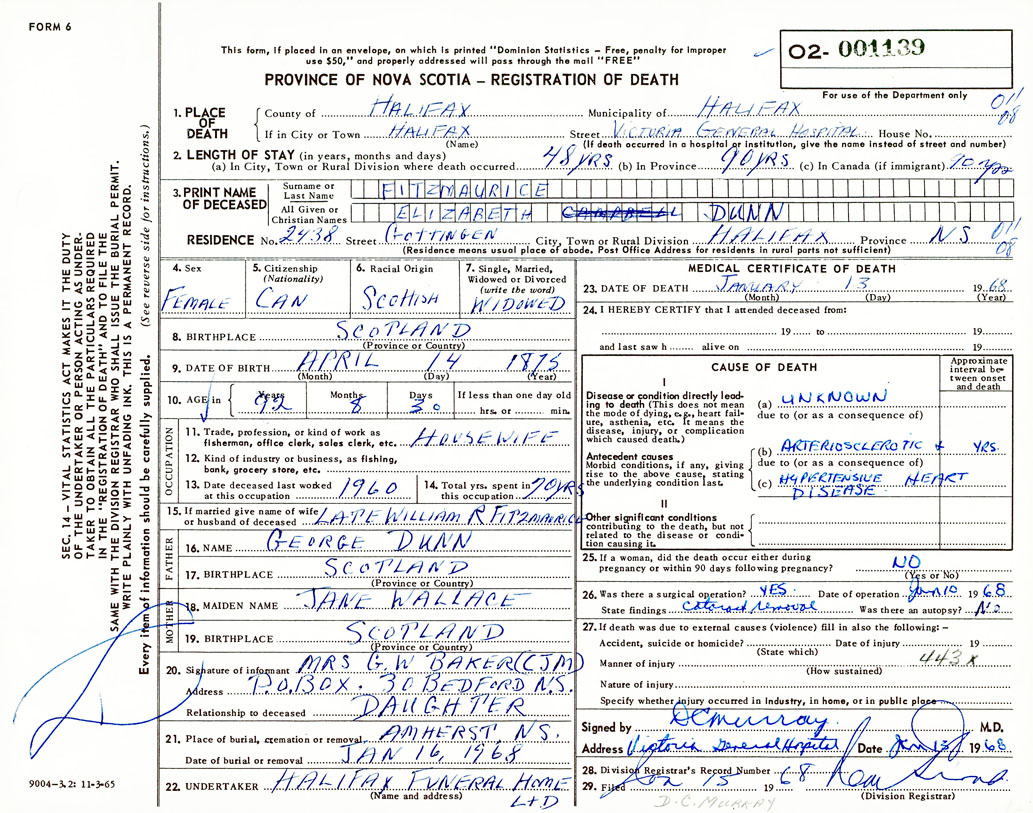 FORM 6
This form, if placed in an envelope, on which is printed "Dominion Statistics – Free, penalty for improper
use $50," and properly addressed will pass through the mail "FREE"
O2- 001139
PROVINCE OF NOVA SCOTIA – REGISTRATION OF DEATH
For use of the Department only
011
08
1. PLACE OF DEATH
County of HALIFAX Municipality of HALIFAX
If in City or Town HALIFAX Street VICTORIA GENERAL HOSPITAL House No.
(Name) (If death occurred in a hospital or institution, give the name instead of street and number)
2. LENGTH OF STAY (in years, months and days)
(a) In City, Town or Rural Division where death occurred 48 YRS (b) In Province 90 YRS (c) In Canada (if immigrant) 90 yrs
3. PRINT NAME OF DECEASED
Surname or Last Name FITZMAURICE
All Given or Christian Names ELIZABETH CAMPBELL DUNN
RESIDENCE No. 2438 Street GOTTINGEN City, Town or Rural Division HALIFAX Province NS
011
08
(Residence means usual place of abode. Post Office Address for residents in rural parts not sufficient)
4. Sex
FEMALE
5. Citizenship
(Nationality)
CAN
6. Racial Origin
SCOTTISH
7. Single, Married,
Widowed or Divorced
(write the word)
WIDOWED
8. BIRTHPLACE SCOTLAND
(Province or Country)
9. DATE OF BIRTH APRIL 14 1875
(Month) (Day) (Year)
10. AGE in Years Months Days If less than one day old
92 8 30 hrs. or min.
OCCUPATION
11. Trade, profession, or kind of work as
fisherman, office clerk, sales clerk, etc. HOUSEWIFE
12. Kind of industry or business, as fishing,
bank, grocery store, etc.
13. Date deceased last worked
at this occupation 1960
14. Total yrs. spent in
this occupation 70 YRS
15. If married give name of wife
or husband of deceased LATE WILLIAM R FITZMAURICE
FATHER
16. NAME GEORGE DUNN
17. BIRTHPLACE SCOTLAND
(Province or Country)
MOTHER
18. MAIDEN NAME JANE WALLACE
19. BIRTHPLACE SCOTLAND
(Province or Country)
20. Signature of informant MRS G.W BAKER (CJM)
Address P.O.BOX. 30 BEDFORD N.S.
Relationship to deceased DAUGHTER
21. Place of burial, cremation or removal AMHERST, NS.
Date of burial or removal JAN 16, 1968
22. UNDERTAKER HALIFAX FUNERAL HOME
(Name and address) LTD
MEDICAL CERTIFICATE OF DEATH
23. DATE OF DEATH JANUARY 13 1968
(Month) (Day) (Year)
24. I HEREBY CERTIFY that I attended deceased from:
19 to 19
and last saw h alive on 19
CAUSE OF DEATH
Approximate
interval be-
tween onset
and death
I
Disease or condition directly lead-
ing to death (This does not mean
the mode of dying, e.g., heart fail-
ure, asthenia, etc. It means the
disease, injury, or complication
which caused death.)
(a) UNKNOWN
due to (or as a consequence of)
Antecedent causes
Morbid conditions, if any, giving
rise to the above cause, stating
the underlying condition last.
(b) ARTERIOSCLEROTIC & YRS.
due to (or as a consequence of)
(c) HYPERTENSIVE HEART
DISEASE
II
Other significant conditions
contributing to the death, but not
related to the disease or condi-
tion causing it.
25. If a woman, did the death occur either during
pregnancy or within 90 days following pregnancy? NO
(Yes or No)
26. Was there a surgical operation? YES. Date of operation Jan 10 1968
State findings Cataract removal Was there an autopsy? NO
27. If death was due to external causes (violence) fill in also the following:–
Accident, suicide or homicide? Date of injury 19
(State which)
443X
Manner of injury
(How sustained)
Nature of injury
Specify whether injury occurred in Industry, in home, or in public place
Signed by DCMurray M.D.
Address Victoria General Hospital Date Jan 13 1968
28. Division Registrar's Record Number
29. Filed Jan 15 1968
(Division Registrar)
D.C. MURRAY
SEC. 14 – VITAL STATISTICS ACT MAKES IT THE DUTY
OF THE UNDERTAKER OR PERSON ACTING AS UNDER-
TAKER TO OBTAIN ALL THE PARTICULARS REQUIRED
IN THE "REGISTRATION OF DEATH" AND TO FILE THE
SAME WITH THE DIVISION REGISTRAR WHO SHALL ISSUE THE BURIAL PERMIT.
WRITE PLAINLY WITH UNFADING INK. THIS IS A PERMANENT RECORD.
Every item of information should be carefully supplied. (See reverse side for instructions.)
9004-3.2: 11-3-65